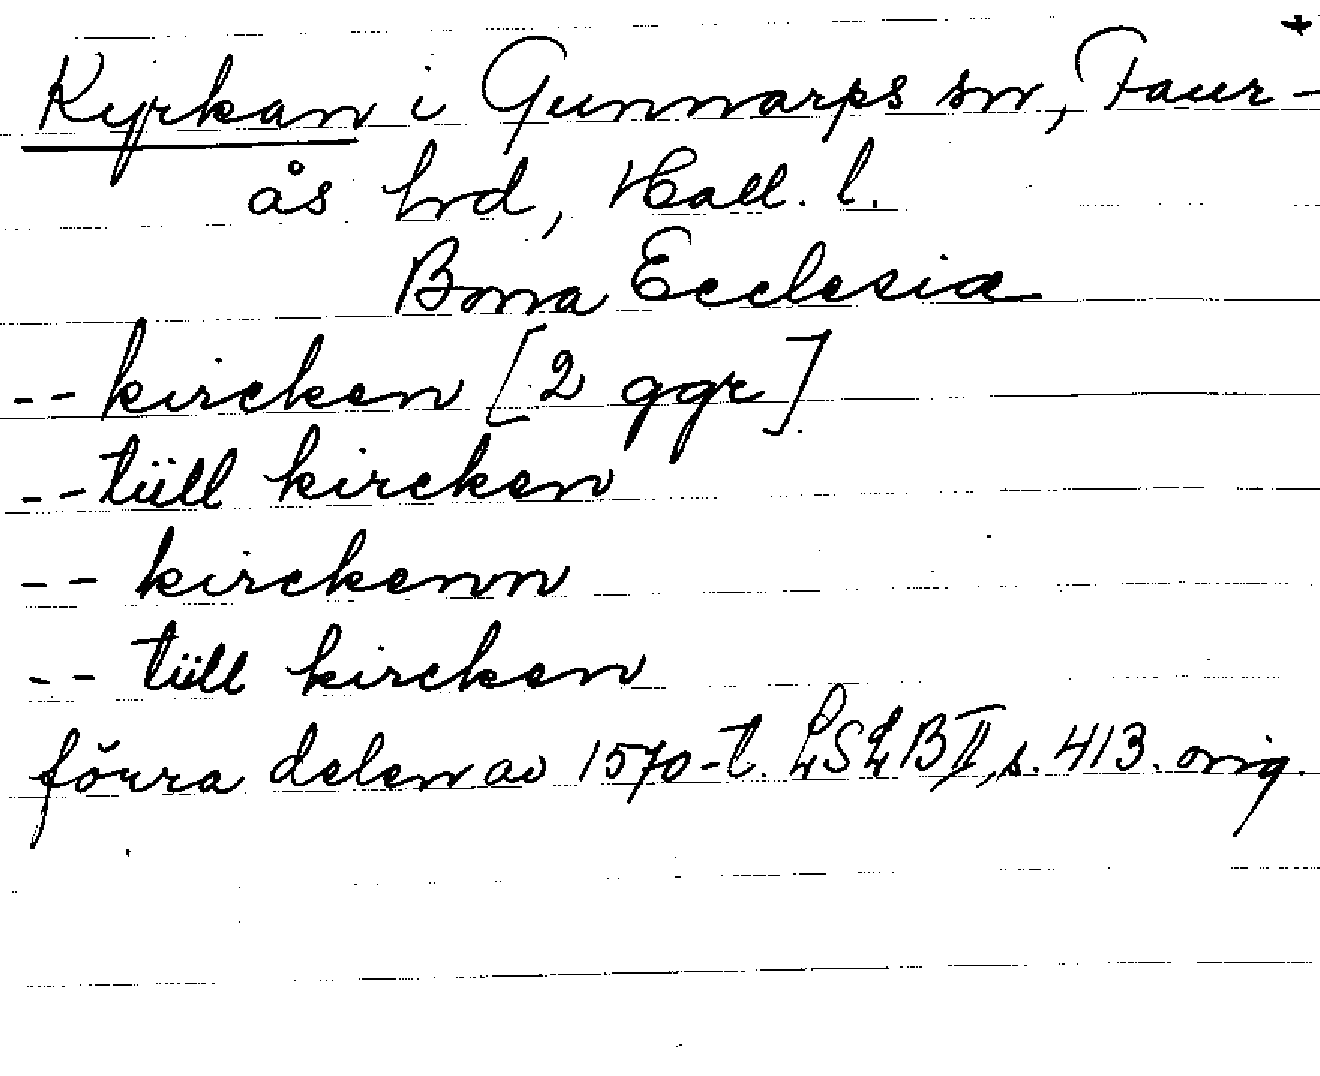 +
Kyrkan i Gunnarps sn, Faur-
ås hrd, Hall. l.
Bona Ecclesiæ
-- kircken [2 ggr]
-- tüll kircken
-- kirckenn
-- tüll kircken
förra delen av 1570-t. LSLB II, s. 413. orig.